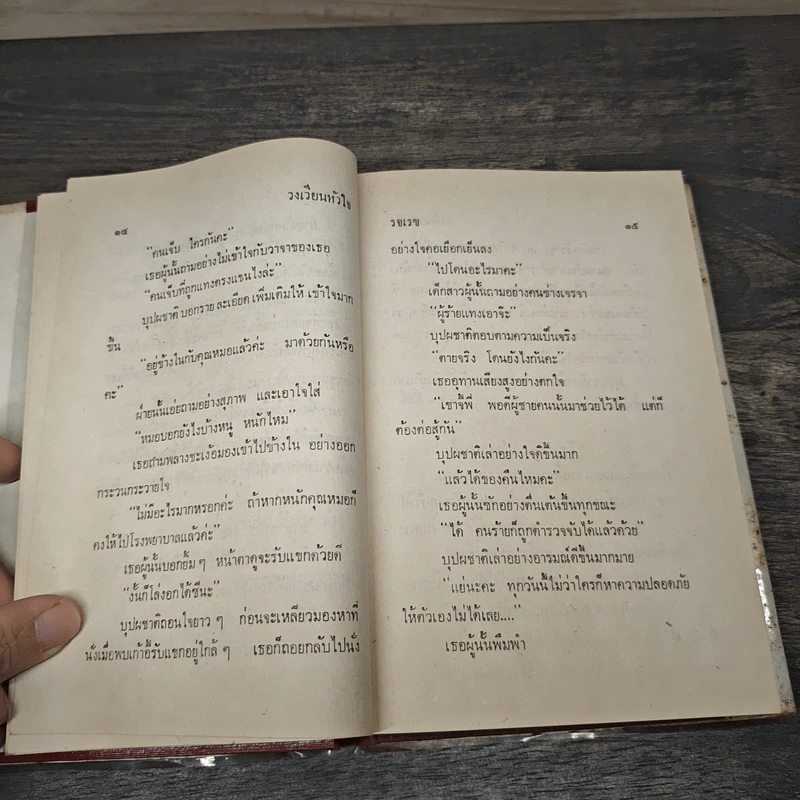 วงเวียนหัวใจ
๑๔
"คนเจ็บ ใครกันคะ"
เธอผู้นั้นถามอย่างไม่เข้าใจกับวาจาของเธอ
"คนเจ็บที่ถูกแทงตรงแขนไงล่ะ"
บุปผชาติ บอกราย ละเอียด เพิ่มเติมให้ เข้าใจมาก
ขึ้น
"อยู่ข้างในกับคุณหมอแล้วค่ะ มาด้วยกันหรือ
คะ"
ฝ่ายนั้นเอ่ยถามอย่างสุภาพ และเอาใจใส่
"หมอบอกยังไงบ้างหนู หนักไหม"
เธอถามพลางชะเง้อมองเข้าไปข้างใน อย่างออก
กระวนกระวายใจ
"ไม่มีอะไรมากหรอกค่ะ ถ้าหากหนักคุณหมอก็
คงให้ไปโรงพยาบาลแล้วค่ะ"
เธอผู้นั้นบอกยิ้ม ๆ หน้าตาดูจะรับแขกด้วยดี
"งั้นก็โล่งอกได้ซีนะ"
บุปผชาติถอนใจยาว ๆ ก่อนจะเหลียวมองหาที่
นั่งเมื่อพบเก้าอี้รับแขกอยู่ใกล้ ๆ เธอก็ถอยกลับไปนั่ง
รจเรข
๑๕
อย่างใจคอเยือกเย็นลง
"ไปโดนอะไรมาคะ"
เด็กสาวผู้นั้นถามอย่างคนช่างเจรจา
"ผู้ร้ายแทงเอาจ๊ะ"
บุปผชาติตอบตามความเป็นจริง
"ตายจริง โดนยังไงกันคะ"
เธออุทานเสียงสูงอย่างตกใจ
"เขาจี้พี่ พอดีผู้ชายคนนั้นมาช่วยไว้ได้ แต่ก็
ต้องต่อสู้กัน"
บุปผชาติเล่าอย่างใจดีขึ้นมาก
"แล้วได้ของคืนไหมคะ"
เธอผู้นั้นซักอย่างตื่นเต้นขึ้นทุกขณะ
"ได้ คนร้ายก็ถูกตำรวจจับได้แล้วด้วย"
บุปผชาติเล่าอย่างอารมณ์ดีขึ้นมากมาย
"แย่นะคะ ทุกวันนี้ไม่ว่าใครก็หาความปลอดภัย
ให้ตัวเองไม่ได้เลย...."
เธอผู้นั้นพึมพำ